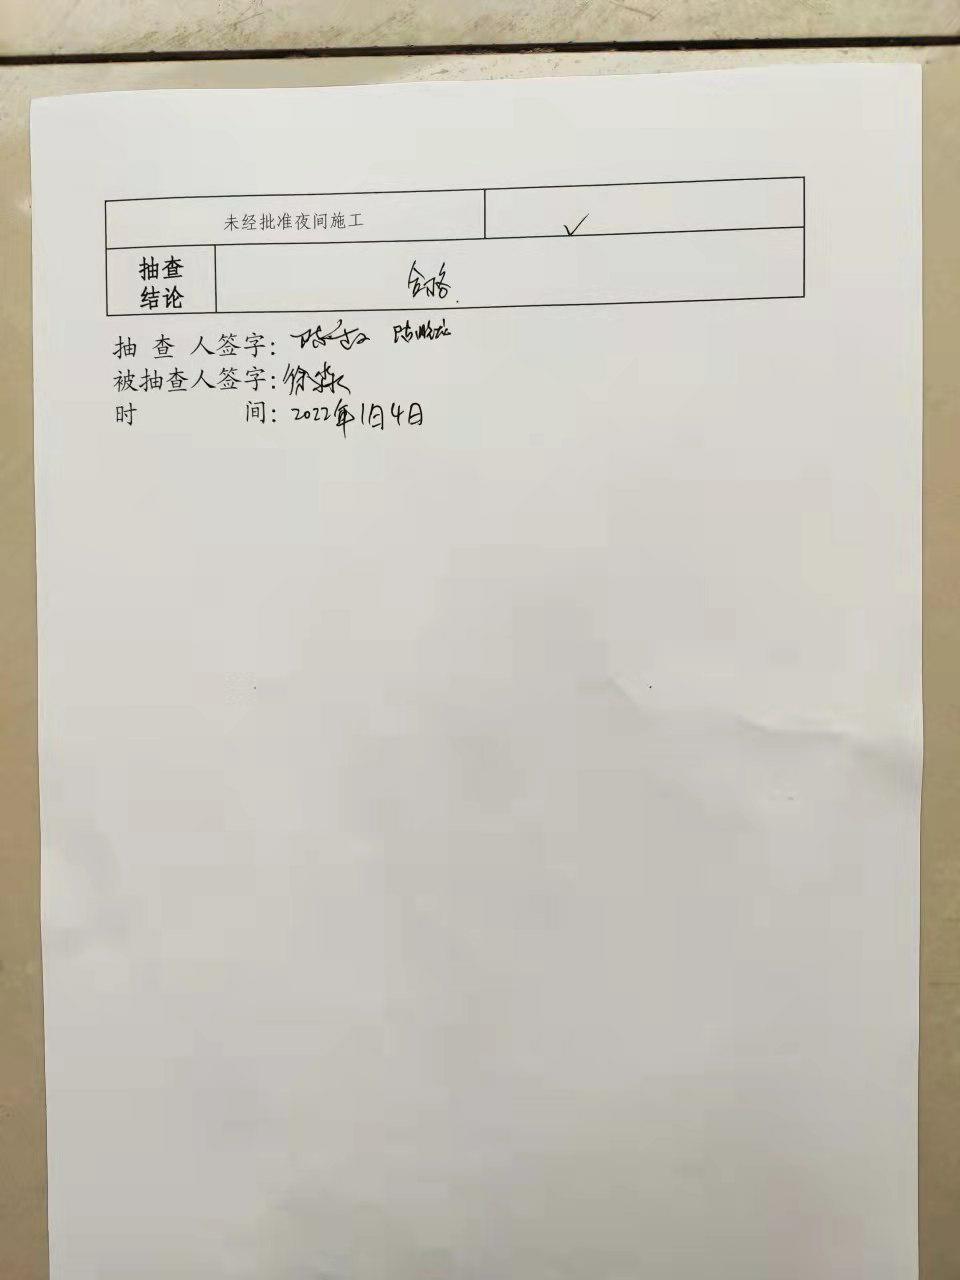 未经批准夜间施工 ✓
抽查
结论
合格.
抽 查 人签字:
被抽查人签字: 徐
时 间: 2022年1月4日